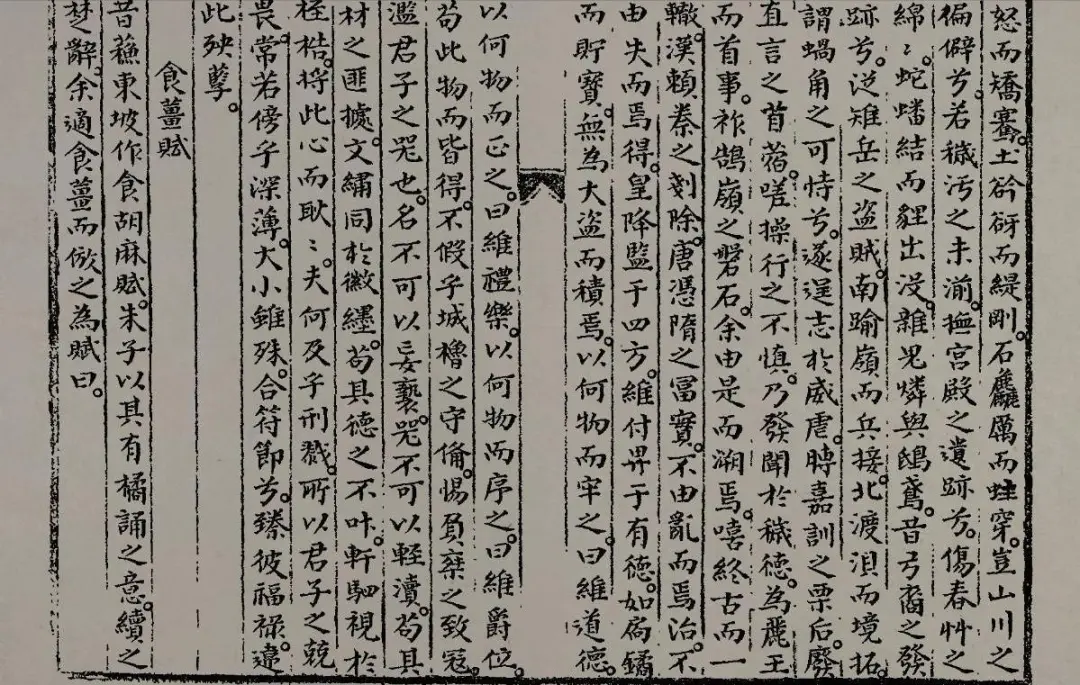 怒而矯騫。土谽谺而緹剛。石麤厲而蛙穿。豈山川之
偏僻兮。若穢汚之未湔。撫宮殿之遺跡兮。傷春艸之
綿〻。蛇蟠結而貍出沒。雜鬼燐與鴟鳶。昔弓裔之發
跡兮。逆雉岳之盜賊。南踰嶺而兵接。北渡浿而境拓。
謂蝸角之可恃兮。遂逞志於威虐。䏁嘉訓之栗后。廢
直言之首蓿。嗟操行之不愼。乃發聞於穢德。為麗王
而首事。祚鵠嶺之磐石。余由是而溯焉。嘻終古而一
轍。漢賴秦之剗除。唐憑隋之富實。不由亂而焉治。不
由失而焉得。皇降監于四方。維付畀于有德。如扃鐍
而貯寶。無為大盜而積焉。以何物而牢之。曰維道德。
以何物而正之。曰維禮樂。以何物而序之。曰維爵位。
苟此物而皆得。不假乎城櫓之守備。惕負椉之致寇。
濫君子之咒也。名不可以妄褻。咒不可以輕瀆。苟具
材之匪據。文繡同於徽纆。苟具德之不叶。軒駟視於
桎梏。將此心而耿〻。夫何及乎刑戮。所以君子之兢
畏。常若傍乎深薄。大小雖殊。合符節兮。臻彼福祿。違
此殃孽。
食薑賦
昔蘇東坡作食胡麻賦。朱子以具有橘誦之意。續之
楚辭。余適食薑而倣之為賦曰。